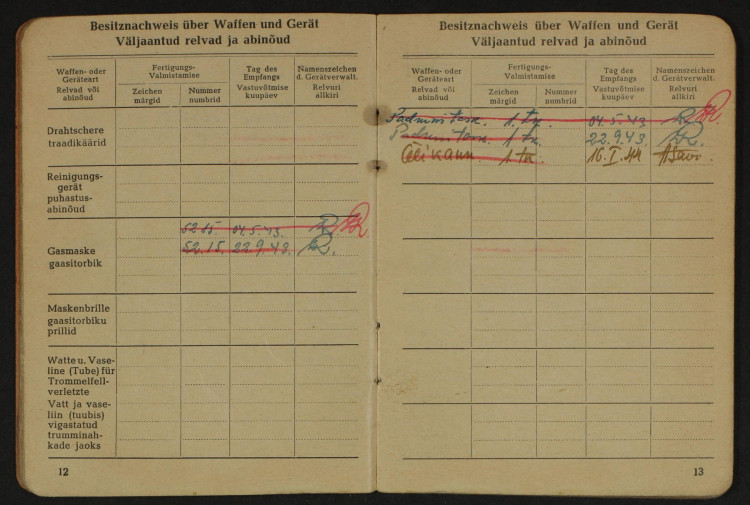 Besitznachweis über Waffen und Gerät
Väljaantud relvad ja abinõud
Waffen- oder Geräteart
Relvad või abinõud
Fertigungs-
Valmistamise
Zeichen
märgid
Nummer
numbrid
Tag des Empfangs
Vastuvõtmise kuupäev
Namenszeichen d. Gerätverwalt.
Relvuri allkiri
Drahtschere
traadikäärid
Reinigungs-
gerät
puhastus-
abinõud
Gasmaske
gaasitorbik
52.15. 04.5.43.
52.15. 22.9.43.
Maskenbrille
gaasitorbiku
prillid
Watte u. Vase-
line (Tube) für
Trommelfell-
verletzte
Vatt ja vase-
liin (tuubis)
vigastatud
trumminah-
kade jaoks
12
Besitznachweis über Waffen und Gerät
Väljaantud relvad ja abinõud
Waffen- oder Geräteart
Relvad või abinõud
Fertigungs-
Valmistamise
Zeichen
märgid
Nummer
numbrid
Tag des Empfangs
Vastuvõtmise kuupäev
Namenszeichen d. Gerätverwalt.
Relvuri allkiri
1 tk. 04.5.43
1 tk. 22.9.43.
Õlikann. 1 tk. 16.I.44
13